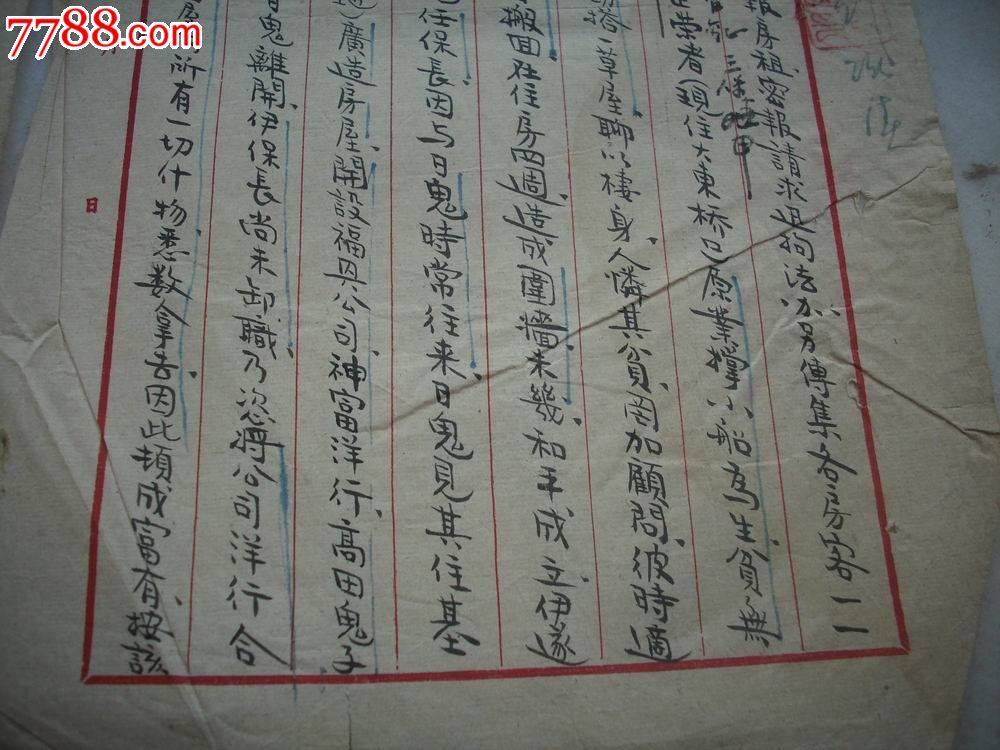 7788.com
報房租密報請求迅拘法办另傳集各房客一一
三保
榮者(頭住大東桥)已原業撑小船為生貧無
搭一草屋聊以棲身人憐其貧困加顧問彼時適
搬囬在住房四週造成圍牆未幾和平成立伊遂
任保長因与日鬼時常往来日鬼見其住基
廣造房屋開設福興公司神富洋行高田鬼子
日鬼離開伊保長尚未卸職乃將公司洋行合
屋所有一切什物悉数拿去因此頓成富有按該
日